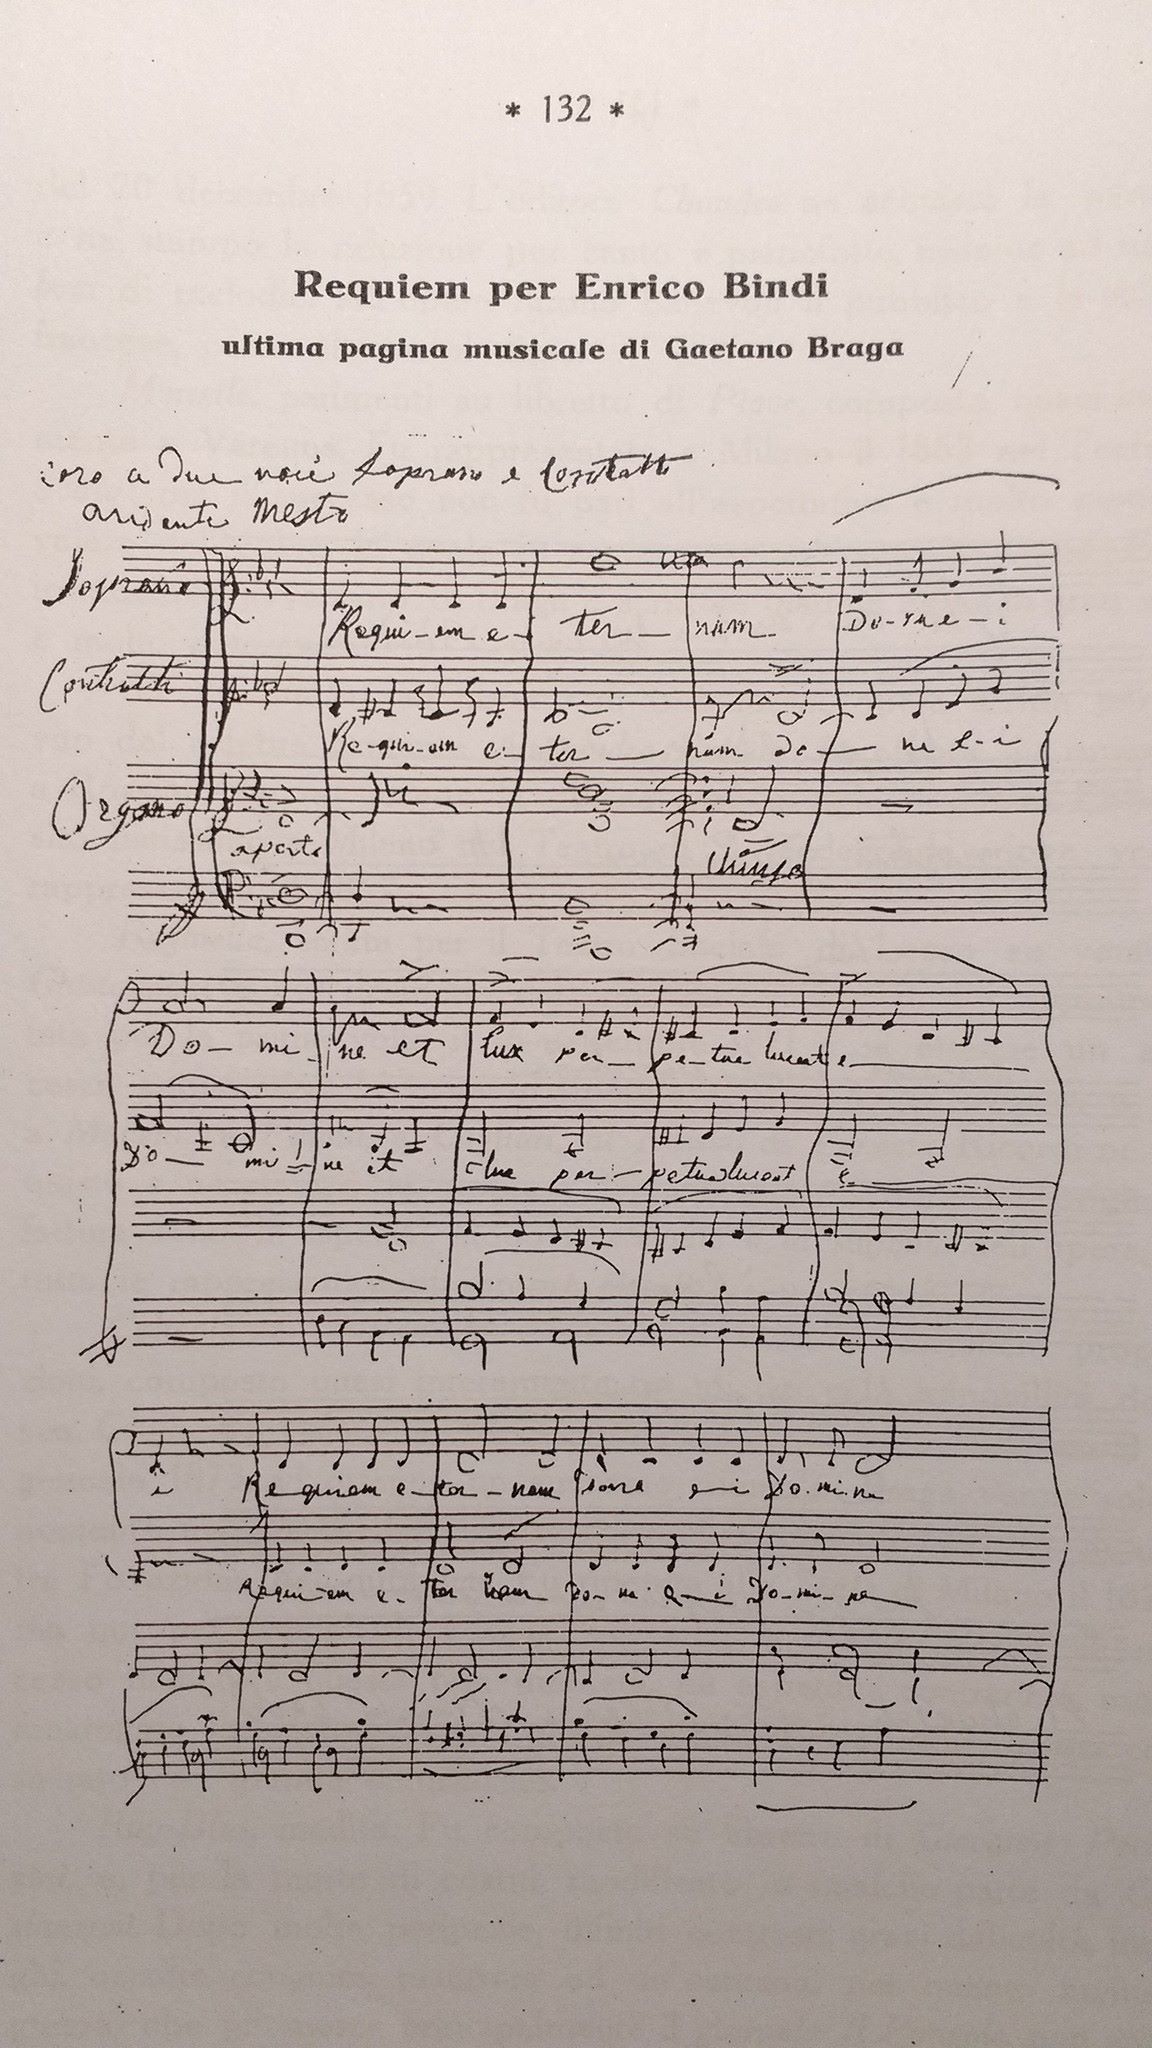 * 132 *
Requiem per Enrico Bindi
ultima pagina musicale di Gaetano Braga
Coro a due voci Soprano e Contralto
Mesto
Soprano
Requi-em e-ter-nam Do-na e-i
Contralti
Re-qui-em e-ter-nam do-na e-i
Organo
aperto
chiuso
Do-mi-ne et lux per-pe-tua luceat e
Do-mi-ne et lux per-petua luceat e
i Requiem e-ter-nam dona e-i Do-mi-ne
Requi-em e-ter nam Do-na e-i Do-mi-ne